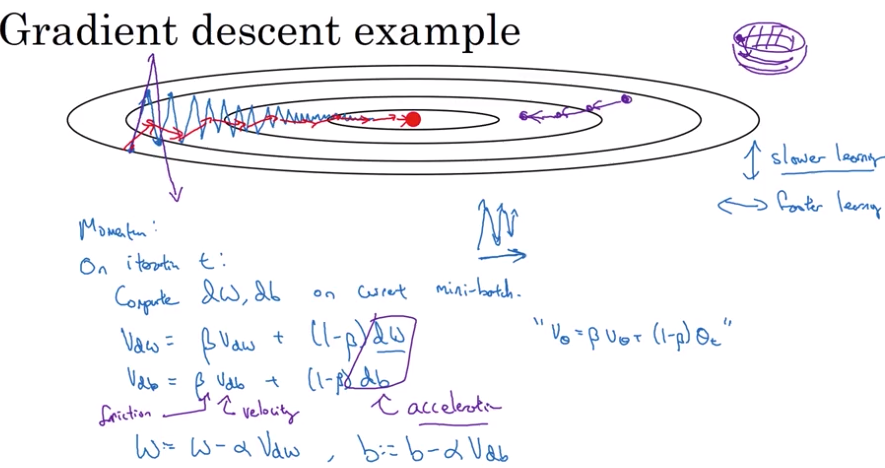 Gradient descent example
slower learning
faster learning
Momentum:
On iteration t:
Compute dW, db on current mini-batch.
V_dw = β V_dw + (1-β) dW
"V_θ = β V_θ + (1-β) θ_t"
V_db = β V_db + (1-β) db
friction velocity acceleration
W := W - α V_dw , b := b - α V_db